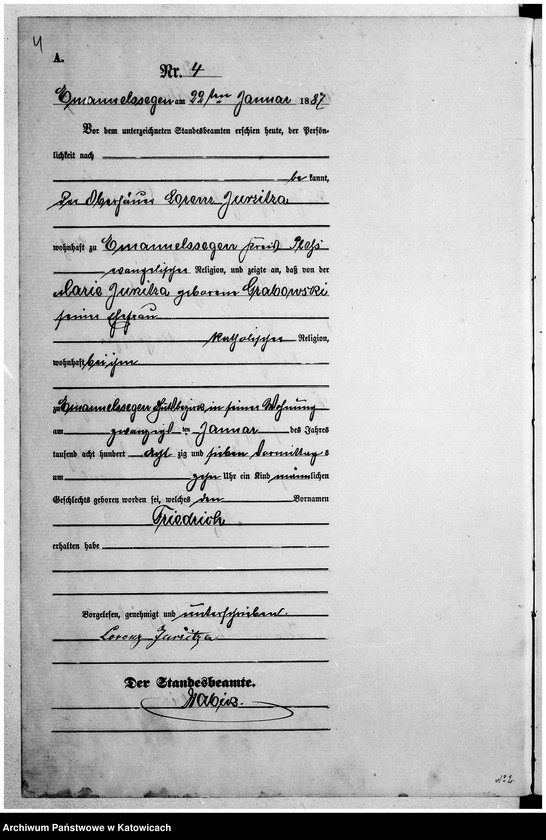 4
A.
Nr. 4
Emanuelssegen am 22ten Januar 1887
Vor dem unterzeichneten Standesbeamten erschien heute, der Persön-
lichkeit nach
be kannt,
der Oberhäuer Lorenz Jursitza
wohnhaft zu Emanuelssegen Kreis Pleß
evangelischer Religion, und zeigte an, daß von der
Marie Jursitza geborene Grabowski
seiner Ehefrau
katholischer Religion,
wohnhaft bei ihm
zu Emanuelssegen Gutsbezirk in seiner Wohnung
am zwanzigsten Januar des Jahres
tausend acht hundert acht zig und sieben Vormittags
um zehn Uhr ein Kind männlichen
Geschlechts geboren worden sei, welches den Vornamen
Friedrich
erhalten habe
Vorgelesen, genehmigt und unterschrieben.
Lorenz Jursitza
Der Standesbeamte.
№ 2
Archiwum Państwowe w Katowicach